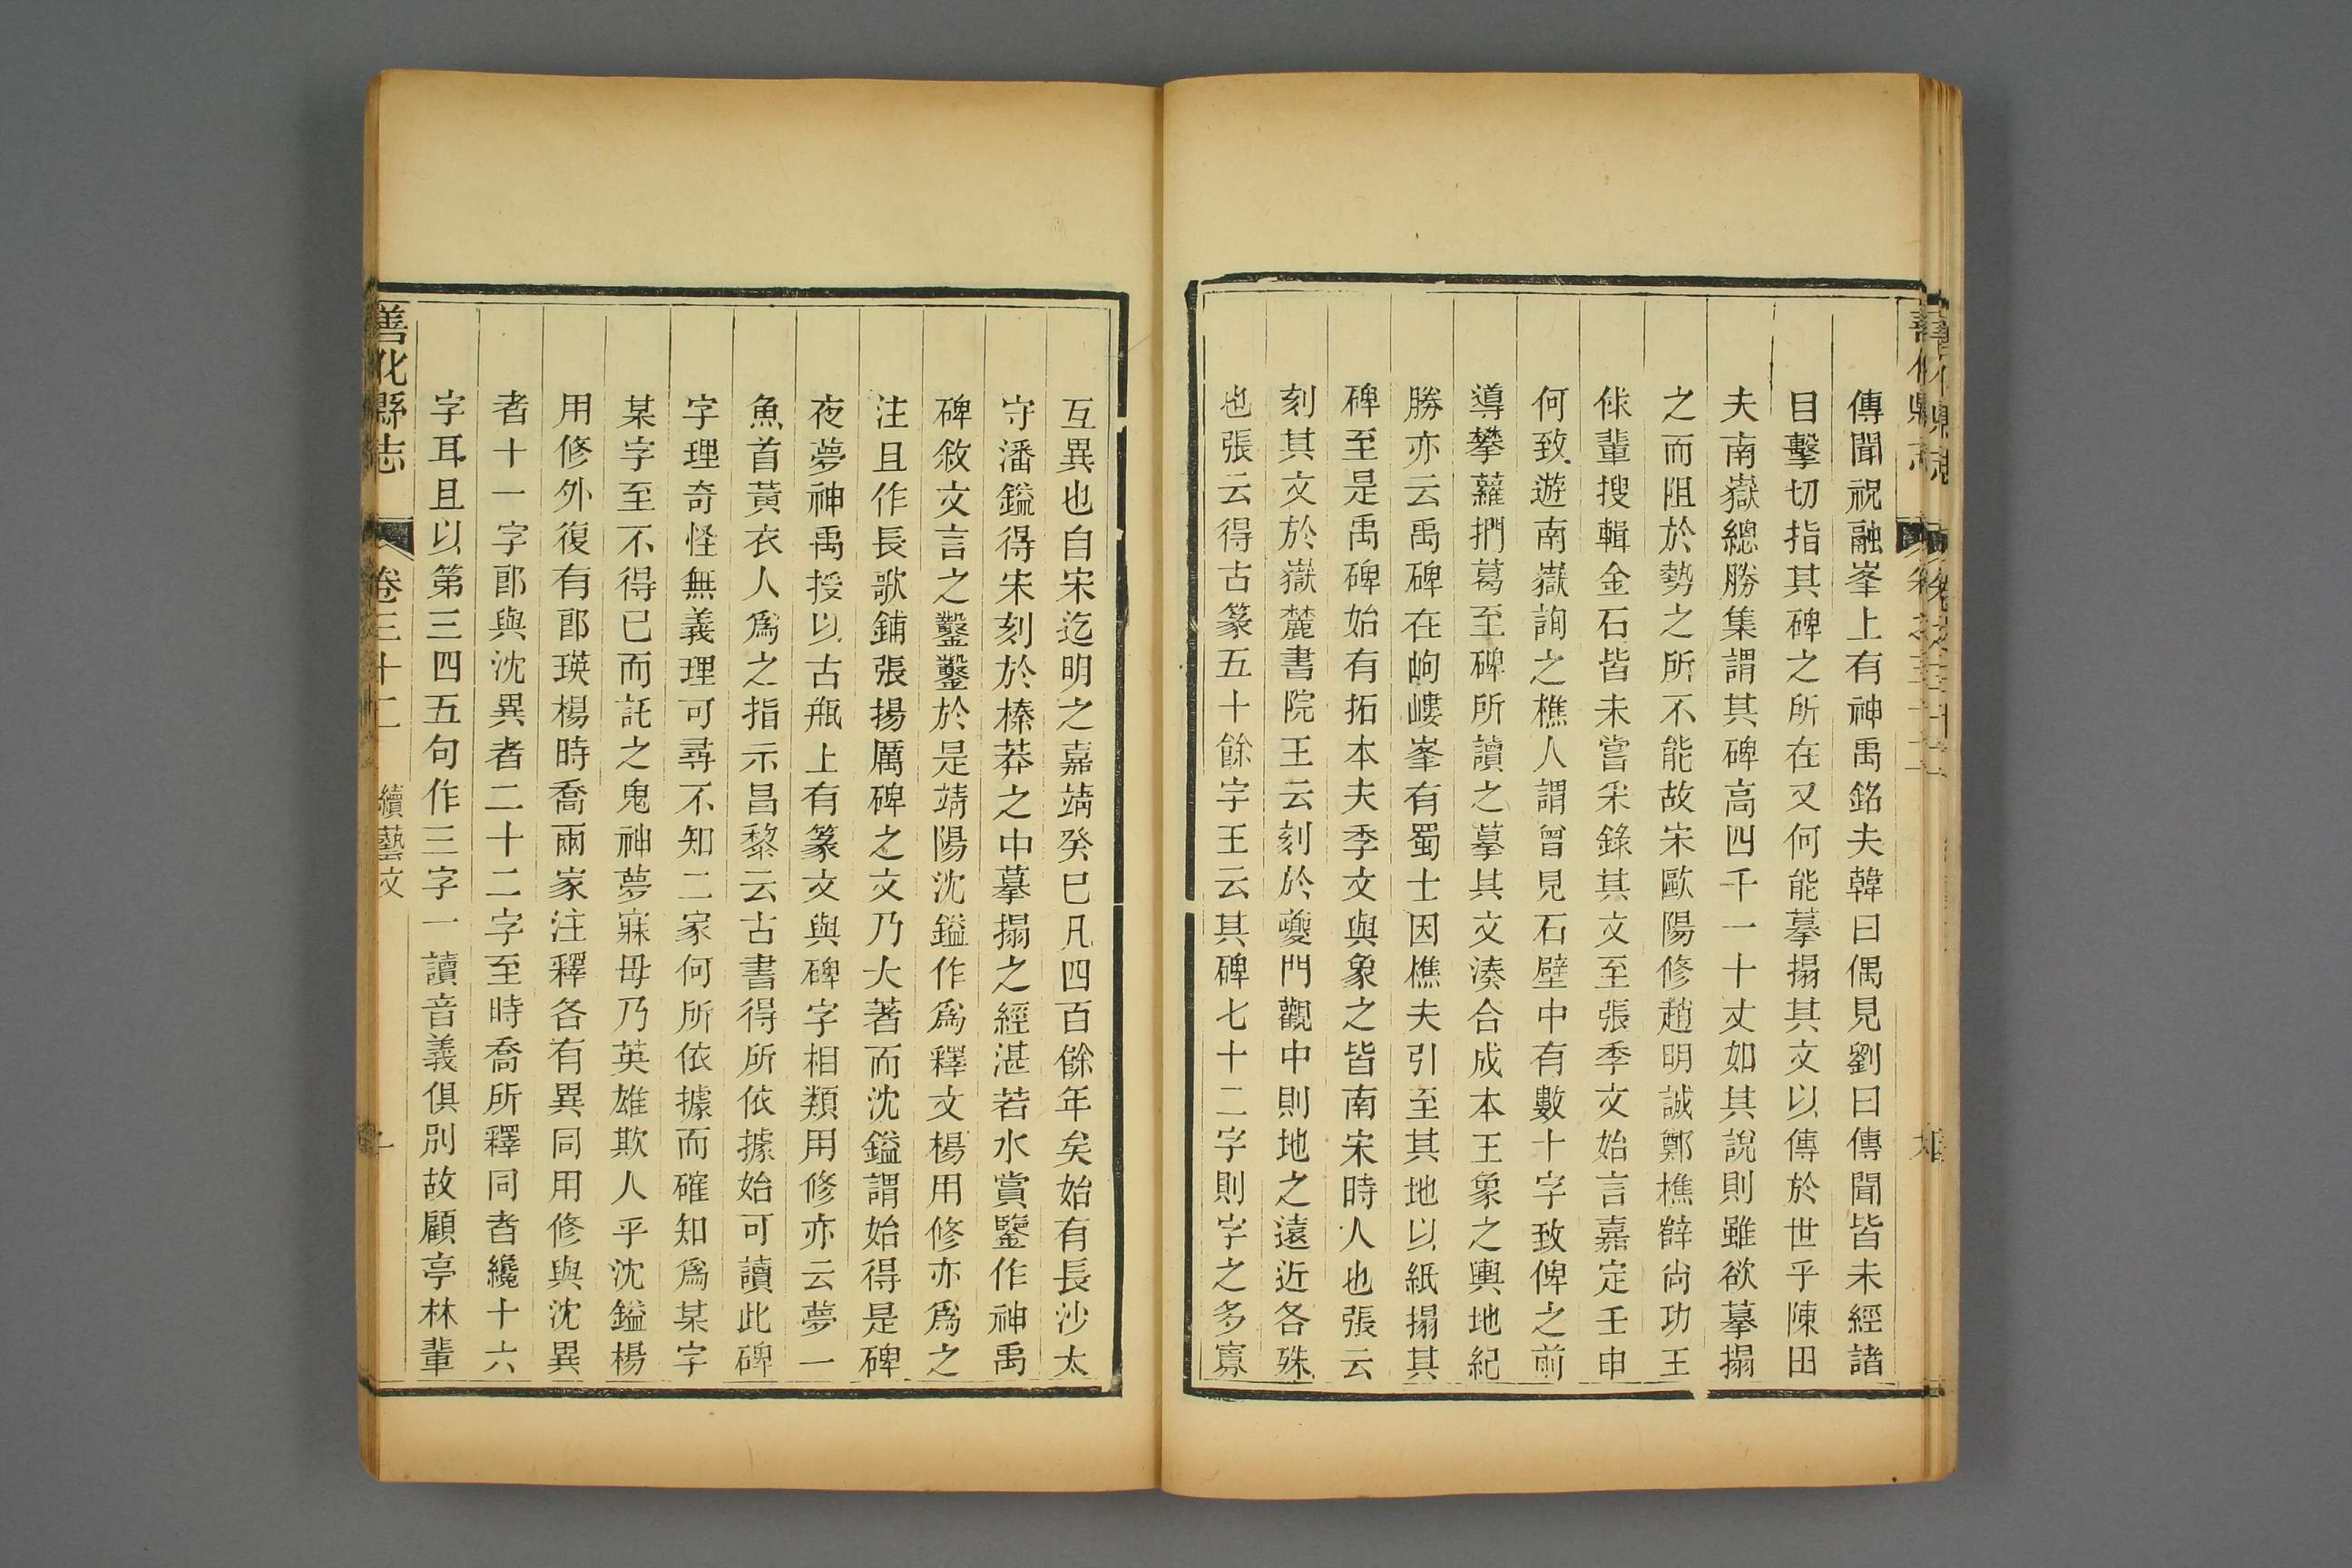 傳聞祝融峯上有神禹銘夫韓曰偶見劉曰傳聞皆未經諸
目擊切指其碑之所在又何能摹搨其文以傳於世乎陳田
夫南嶽總勝集謂其碑高四千一十丈如其說則雖欲摹搨
之而阻於勢之所不能故宋歐陽修趙明誠鄭樵薛尚功王
俅輩搜輯金石皆未嘗采錄其文至張季文始言嘉定壬申
何致遊南嶽詢之樵人謂曾見石壁中有數十字致俾之前
導攀蘿捫葛至碑所讀之摹其文湊合成本王象之輿地紀
勝亦云禹碑在岣嶁峯有蜀士因樵夫引至其地以紙搨其
碑至是禹碑始有拓本夫季文與象之皆南宋時人也張云
刻其文於嶽麓書院王云刻於夔門觀中則地之遠近各殊
也張云得古篆五十餘字王云其碑七十二字則字之多寡
互異也自宋迄明之嘉靖癸巳凡四百餘年矣始有長沙太
守潘鎰得宋刻於榛莽之中摹搨之經湛若水賞鑒作神禹
碑敘文言之鑿鑿於是靖陽沈鎰作爲釋文楊用修亦爲之
注且作長歌鋪張揚厲碑之文乃大著而沈鎰謂始得是碑
夜夢神禹授以古瓶上有篆文與碑字相類用修亦云夢一
魚首黃衣人爲之指示昌黎云古書得所依據始可讀此碑
字理奇怪無義理可尋不知二家何所依據而確知爲某字
某字至不得已而託之鬼神夢寐毋乃英雄欺人乎沈鎰楊
用修外復有郎瑛楊時喬兩家注釋各有異同用修與沈異
者十一字郎與沈異者二十二字至時喬所釋同者纔十六
字耳且以第三四五句作三字一讀音義俱別故顧亭林輩
善化縣志 卷三十二 續藝文